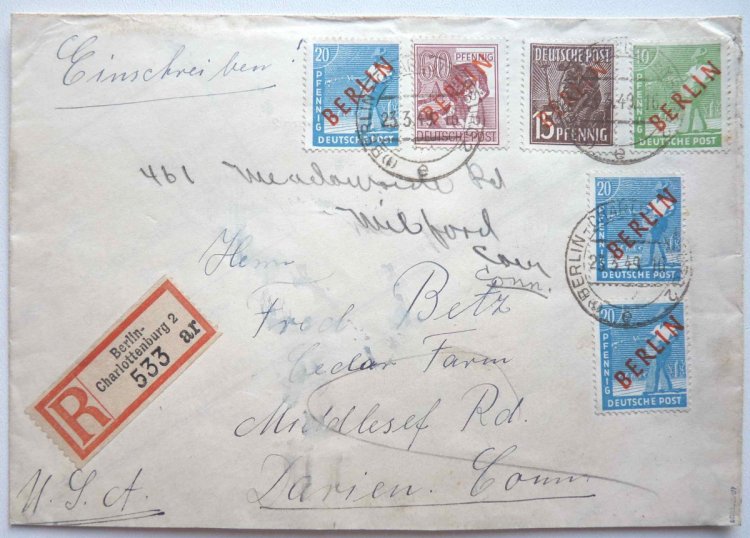 Einschreiben!
20 PFENNIG
BERLIN
DEUTSCHE POST
60 PFENNIG
BERLIN
DEUTSCHE POST
DEUTSCHE POST
BERLIN
15 PFENNIG
10 PFENNIG
BERLIN
DEUTSCHE POST
23.3.49
461 Meadowside Rd
Milford
Conn.
20
BERLIN
DEUTSCHE POST
Herrn
Fred. Betz
Cedar Farm
Middlesef Rd.
Darien. Conn.
20 PFENNIG
BERLIN
DEUTSCHE POST
R
Berlin-
Charlottenburg 2
533 ar
U.S.A.